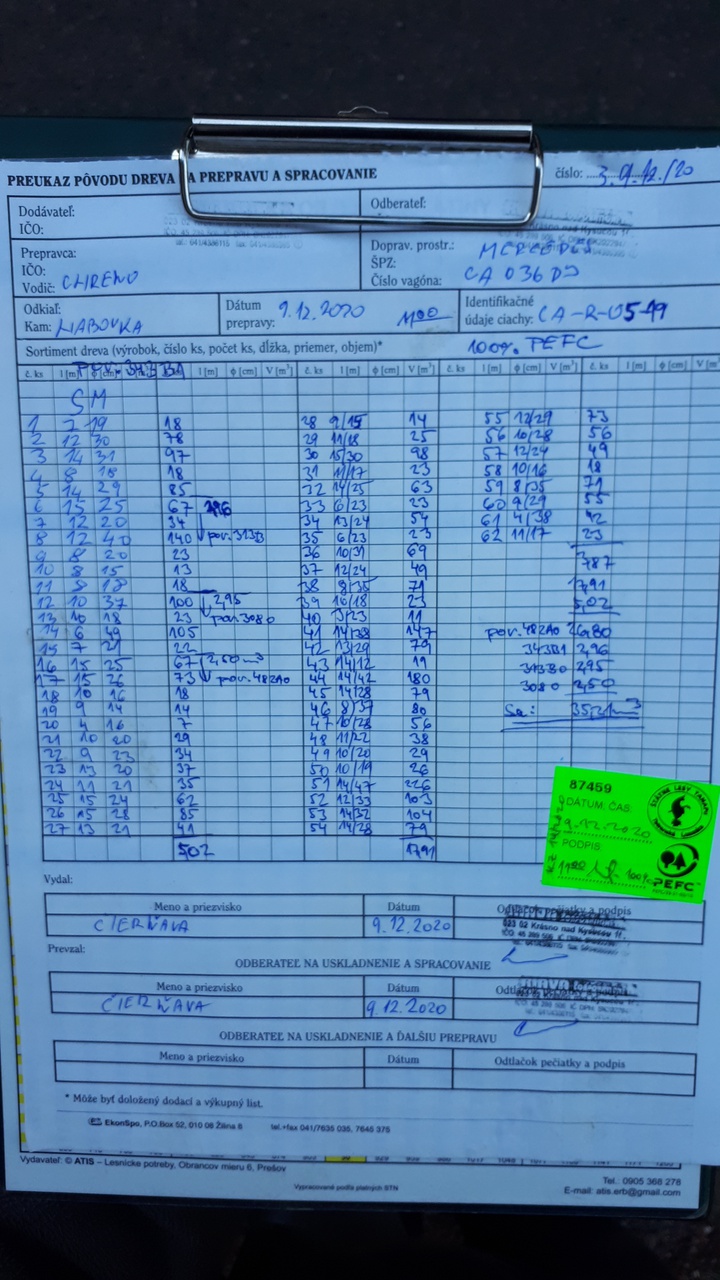 PREUKAZ PÔVODU DREVA NA PREPRAVU A SPRACOVANIE
číslo: 3. 9.12./20
Dodávateľ:
IČO:
Odberateľ:
Prepravca:
IČO:
Vodič:
Doprav. prostr.: MERCEDES
ŠPZ:
Číslo vagóna: CA 036 DJ
Odkiaľ:
Kam: HABOVKA
Dátum
prepravy: 9.12.2020
Identifikačné
údaje ciachy: CA-R-0549
Sortiment dreva (výrobok, číslo ks, počet ks, dĺžka, priemer, objem)* 100% PEFC
č. ks l [m] ϕ [cm] l [m] ϕ [cm] V [m³] č. ks l [m] ϕ [cm] V [m³] č. ks l [m] ϕ [cm] V [m³] č. ks l [m] ϕ [cm] V [m³]
SM
1 7 19 18 28 9/15 14 55 12/29 73
2 12 30 78 29 11/18 25 56 10/28 56
3 14 31 97 30 15/30 98 57 12/24 49
4 8 18 18 31 11/17 23 58 10/16 18
5 14 29 85 32 14/25 63 59 8/35 71
6 15 25 67 33 6/23 23 60 9/29 55
7 12 20 34 34 13/24 54 61 4/38 42
8 12 40 140 35 6/23 23 62 11/17 23
9 8 20 23 36 10/31 69
10 8 15 13 37 12/24 49 787
11 18 38 8/35 71 1791
12 10 37 100 2,95 39 10/18 23 5,02
13 10 18 23 pov. 3080 40 11
14 6 49 105 41 147 pov. 482A0 26,80
15 7 21 22 42 13/29 79 343B1 2,96
16 15 25 67 2,50 m³ 43 14/12 19 313B0 2,95
17 15 26 73 pov. 482A0 44 14/42 180 3080 2,50
18 10 16 18 45 14/28 79
19 9 14 14 46 8/37 80 Sa: 35,21 m³
20 4 16 7 47 10/28 56
21 10 20 29 48 11/22 38
22 9 23 34 49 10/20 29
23 13 20 37 50 10/19 26
24 11 21 35 51 14/47 226
25 15 24 62 52 12/33 103
26 15 28 85 53 14/32 104
27 13 21 41 54 14/28 79
502 1791
87459
DÁTUM, ČAS:
9.12.2020
PODPIS:
100%
ŠTÁTNE LESY TANAPu
PEFC
Vydal:
Meno a priezvisko Dátum Odtlačok pečiatky a podpis
CIERŇAVA 9.12.2020
023 02 Krásno nad Kysucou
Prevzal:
ODBERATEĽ NA USKLADNENIE A SPRACOVANIE
Meno a priezvisko Dátum Odtlačok pečiatky a podpis
ČIERŇAVA 9.12.2020
ODBERATEĽ NA USKLADNENIE A ĎALŠIU PREPRAVU
Meno a priezvisko Dátum Odtlačok pečiatky a podpis
* Môže byť doložený dodací a výkupný list.
EkonSpo, P.O.Box 52, 010 08 Žilina 8 tel.+fax 041/7635 035, 7645 375
Vydavateľ: © ATIS – Lesnícke potreby, Obrancov mieru 6, Prešov
Vypracované podľa platných STN
Tel.: 0905 368 278
E-mail: atis.erb@gmail.com